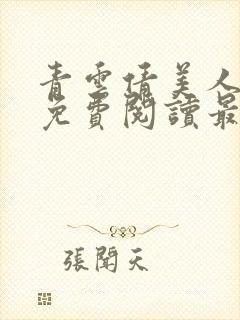 青雲情美人
免費閱讀最
張聞天